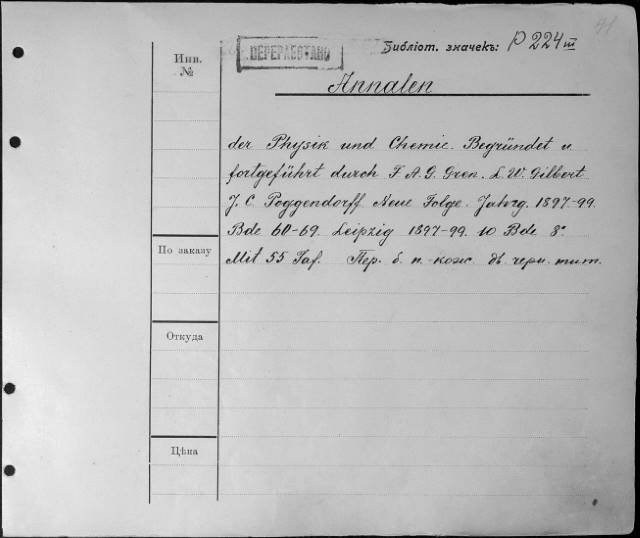 41
ПЕРЕРАБОТАНО
Библіот. значекъ: P 224 III
Инв. №
Annalen
der Physik und Chemie. Begründet u
fortgeführt durch F. A. G. Gren. L. W. Gilbert
J. C. Poggendorff Neue Folge. Jahrg. 1897-99.
Bde 60-69. Leipzig 1897-99. 10 Bde 8°
Mit 55 Taf. Пер. б. п.-кож. дъ черн. тит.
По заказу
Откуда
Цѣна